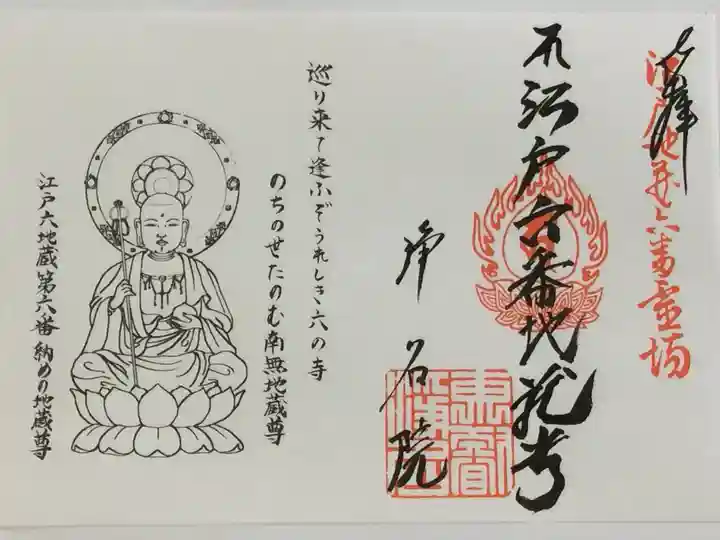 奉拝
江戸六地蔵六番霊場
江戸六番地蔵尊
浄名院
東叡
浄名
巡り来て逢ふぞうれしき六の寺
のちのせたのむ南無地蔵尊
江戸六地蔵第六番 納めの地蔵尊